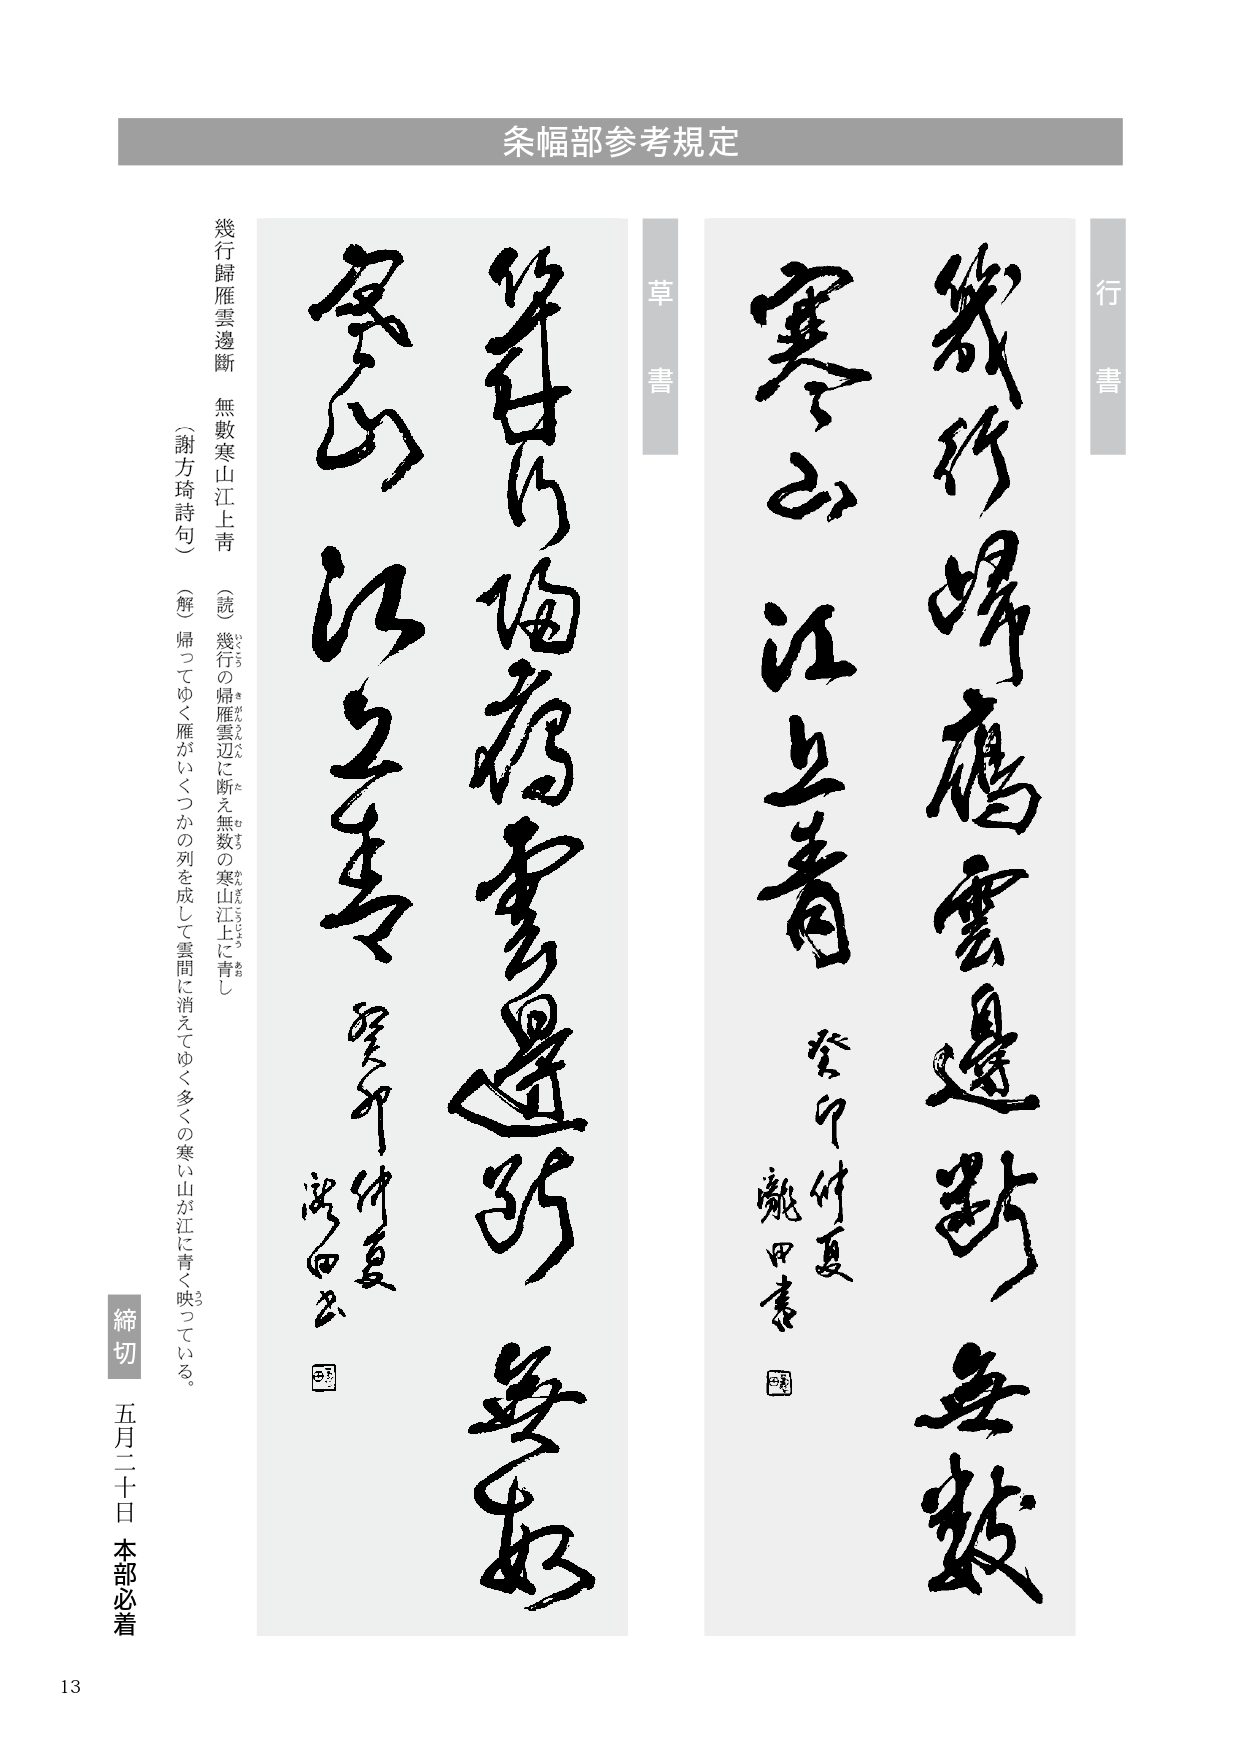 条幅部参考規定
行書
幾行歸雁雲邊斷 無數
寒山 江上青 癸卯 仲夏
瀧田書
草書
幾行歸雁雲邊斷 無數
寒山 江上青 癸卯 仲夏
瀧田書
幾行歸雁雲邊斷 無數寒山江上靑 (読) 幾行の帰雁雲辺に断え無数の寒山江上に青し
いくこう きがんうんぺん た むすう かんざんこうじょう あお
(謝方琦詩句) (解) 帰ってゆく雁がいくつかの列を成して雲間に消えてゆく多くの寒い山が江に青く映っている。
うつ
締切 五月二十日 本部必着
13